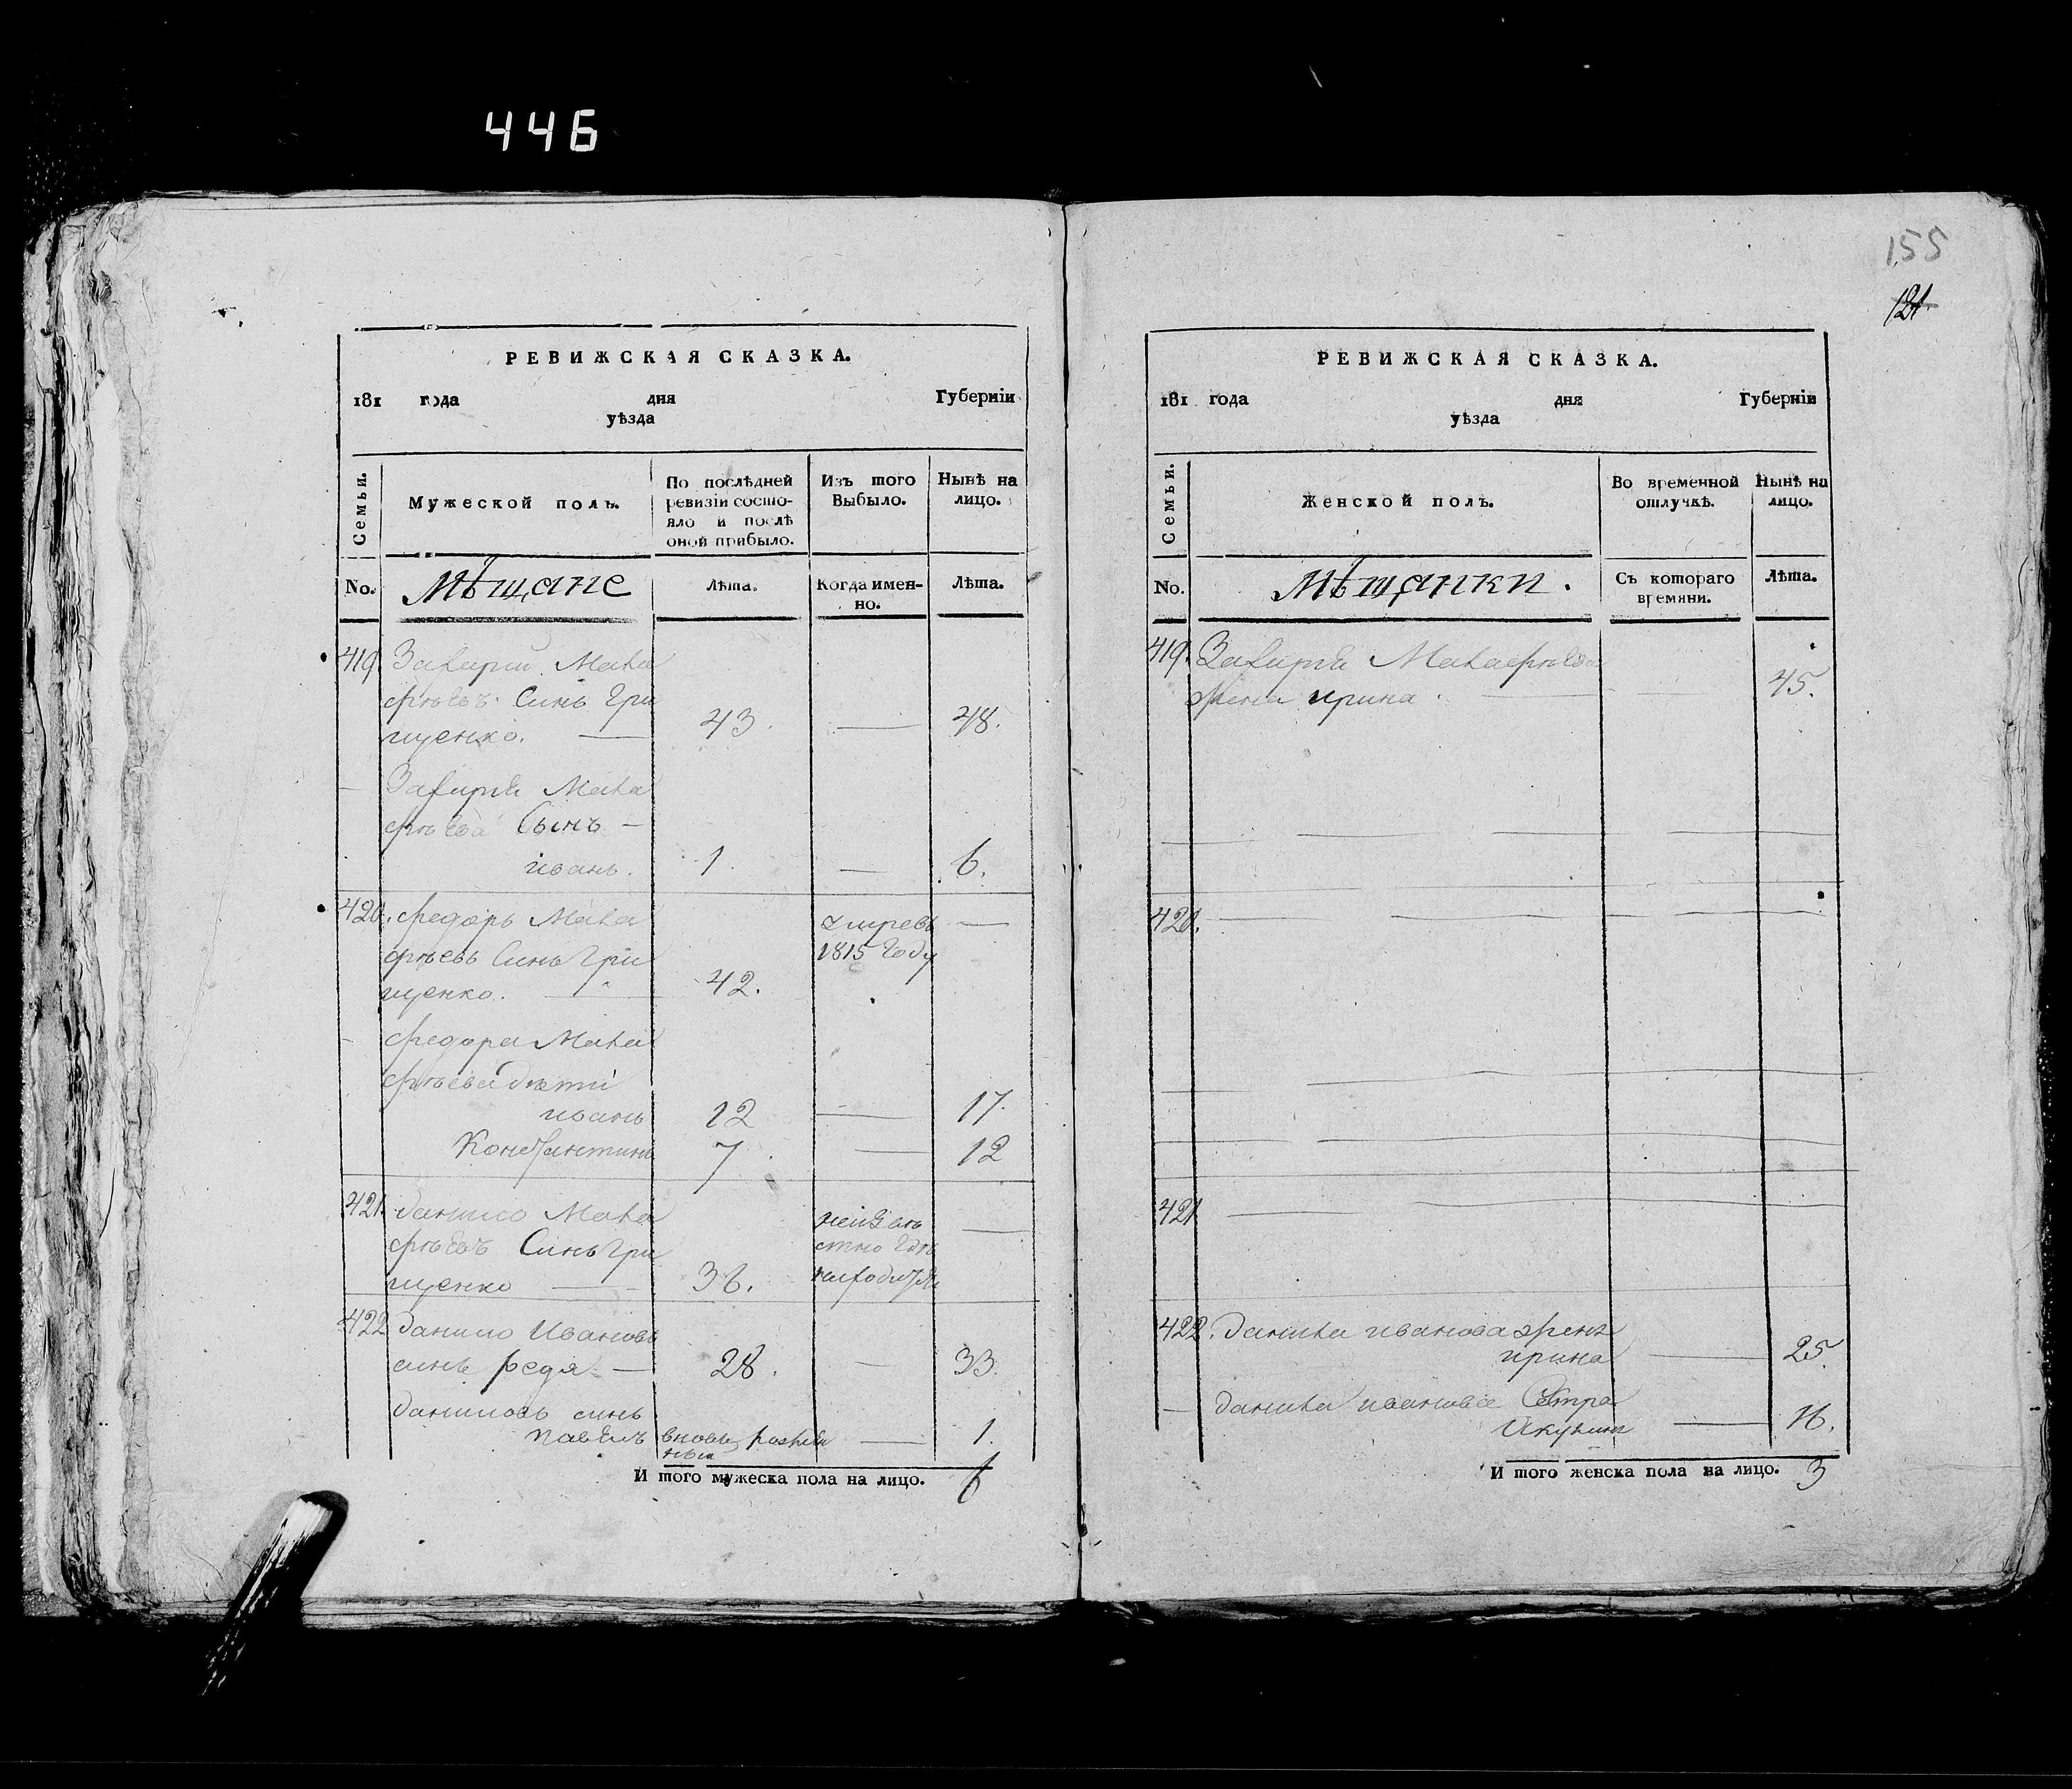 446
155
121
РЕВИЖСКАЯ СКАЗКА.
181 года дня Губерніи
уѣзда
Семьи.
Мужеской полъ.
По послѣдней ревизіи состо-
яло и послѣ оной прибыло.
Изъ того Выбыло.
Нынѣ на лицо.
No.
Мѣщане
Лѣта.
Когда имен-
но.
Лѣта.
419. Захарій Мака
фѣевъ Синъ Гри
щенко. 43. 48.
Захарія Мака
фѣева Сынъ
иванъ. 1. 6.
420. федоръ Мака умревъ
фѣевъ Синъ Гри 1815 Году
щенко. 42.
федора Мака
фѣева дѣти
иванъ 12 17.
Констянтинъ 7. 12
421. данило Мака неизвѣ
фѣевъ Синъ Гри стно Где
щенко 36. находится
422 данило Ивановъ
синъ редя 28. 33.
даниловъ синъ
павелъ вновь рожден
ный 1.
И того мужеска пола на лицо. 6
РЕВИЖСКАЯ СКАЗКА.
181 года дня Губерніи
уѣзда
Семьи.
Женской полъ.
Во временной отлучкѣ.
Нынѣ на лицо.
No.
Мѣщанки.
Съ котораго времяни.
Лѣта.
419. Захарія Макафѣева
жена ирина. 45.
420.
421
422. данила иванова жена
ирина 25.
данила иванова Сестра
Акулина 16.
И того женска пола на лицо. 3